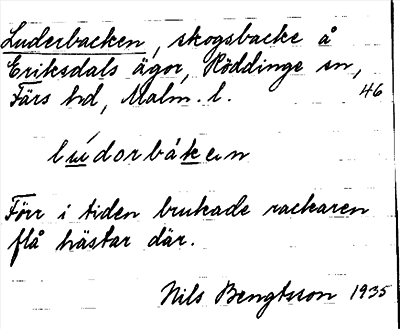 Luderbacken, skogsbacke å
Eriksdals ägor, Röddinge sn,
Färs hd, Malm. l. 46
lúdorbákeın
Förr i tiden brukade rackaren
flå hästar där.
Nils Bengtsson 1935